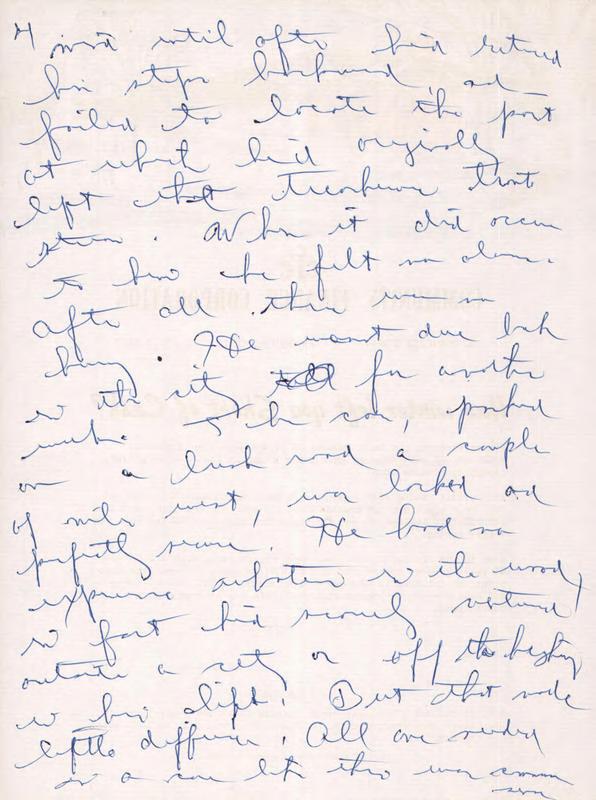 mind until after he'd retraced
his steps backward, and
failed to locate the point
at which he'd originally
left that treacherous trout
stream. When it did occur
to him he felt no alarm.
After all there was no
hurry. He wasn't due back
in the city for another
week. The car, parked
on a bush road a couple
of miles west, was locked and
perfectly secure. He had no
experience in the woods,
in fact he'd scarcely ventured
outside a city or off the highway
in his life. But that made
little difference. All one needed
in a case like this was common
sense